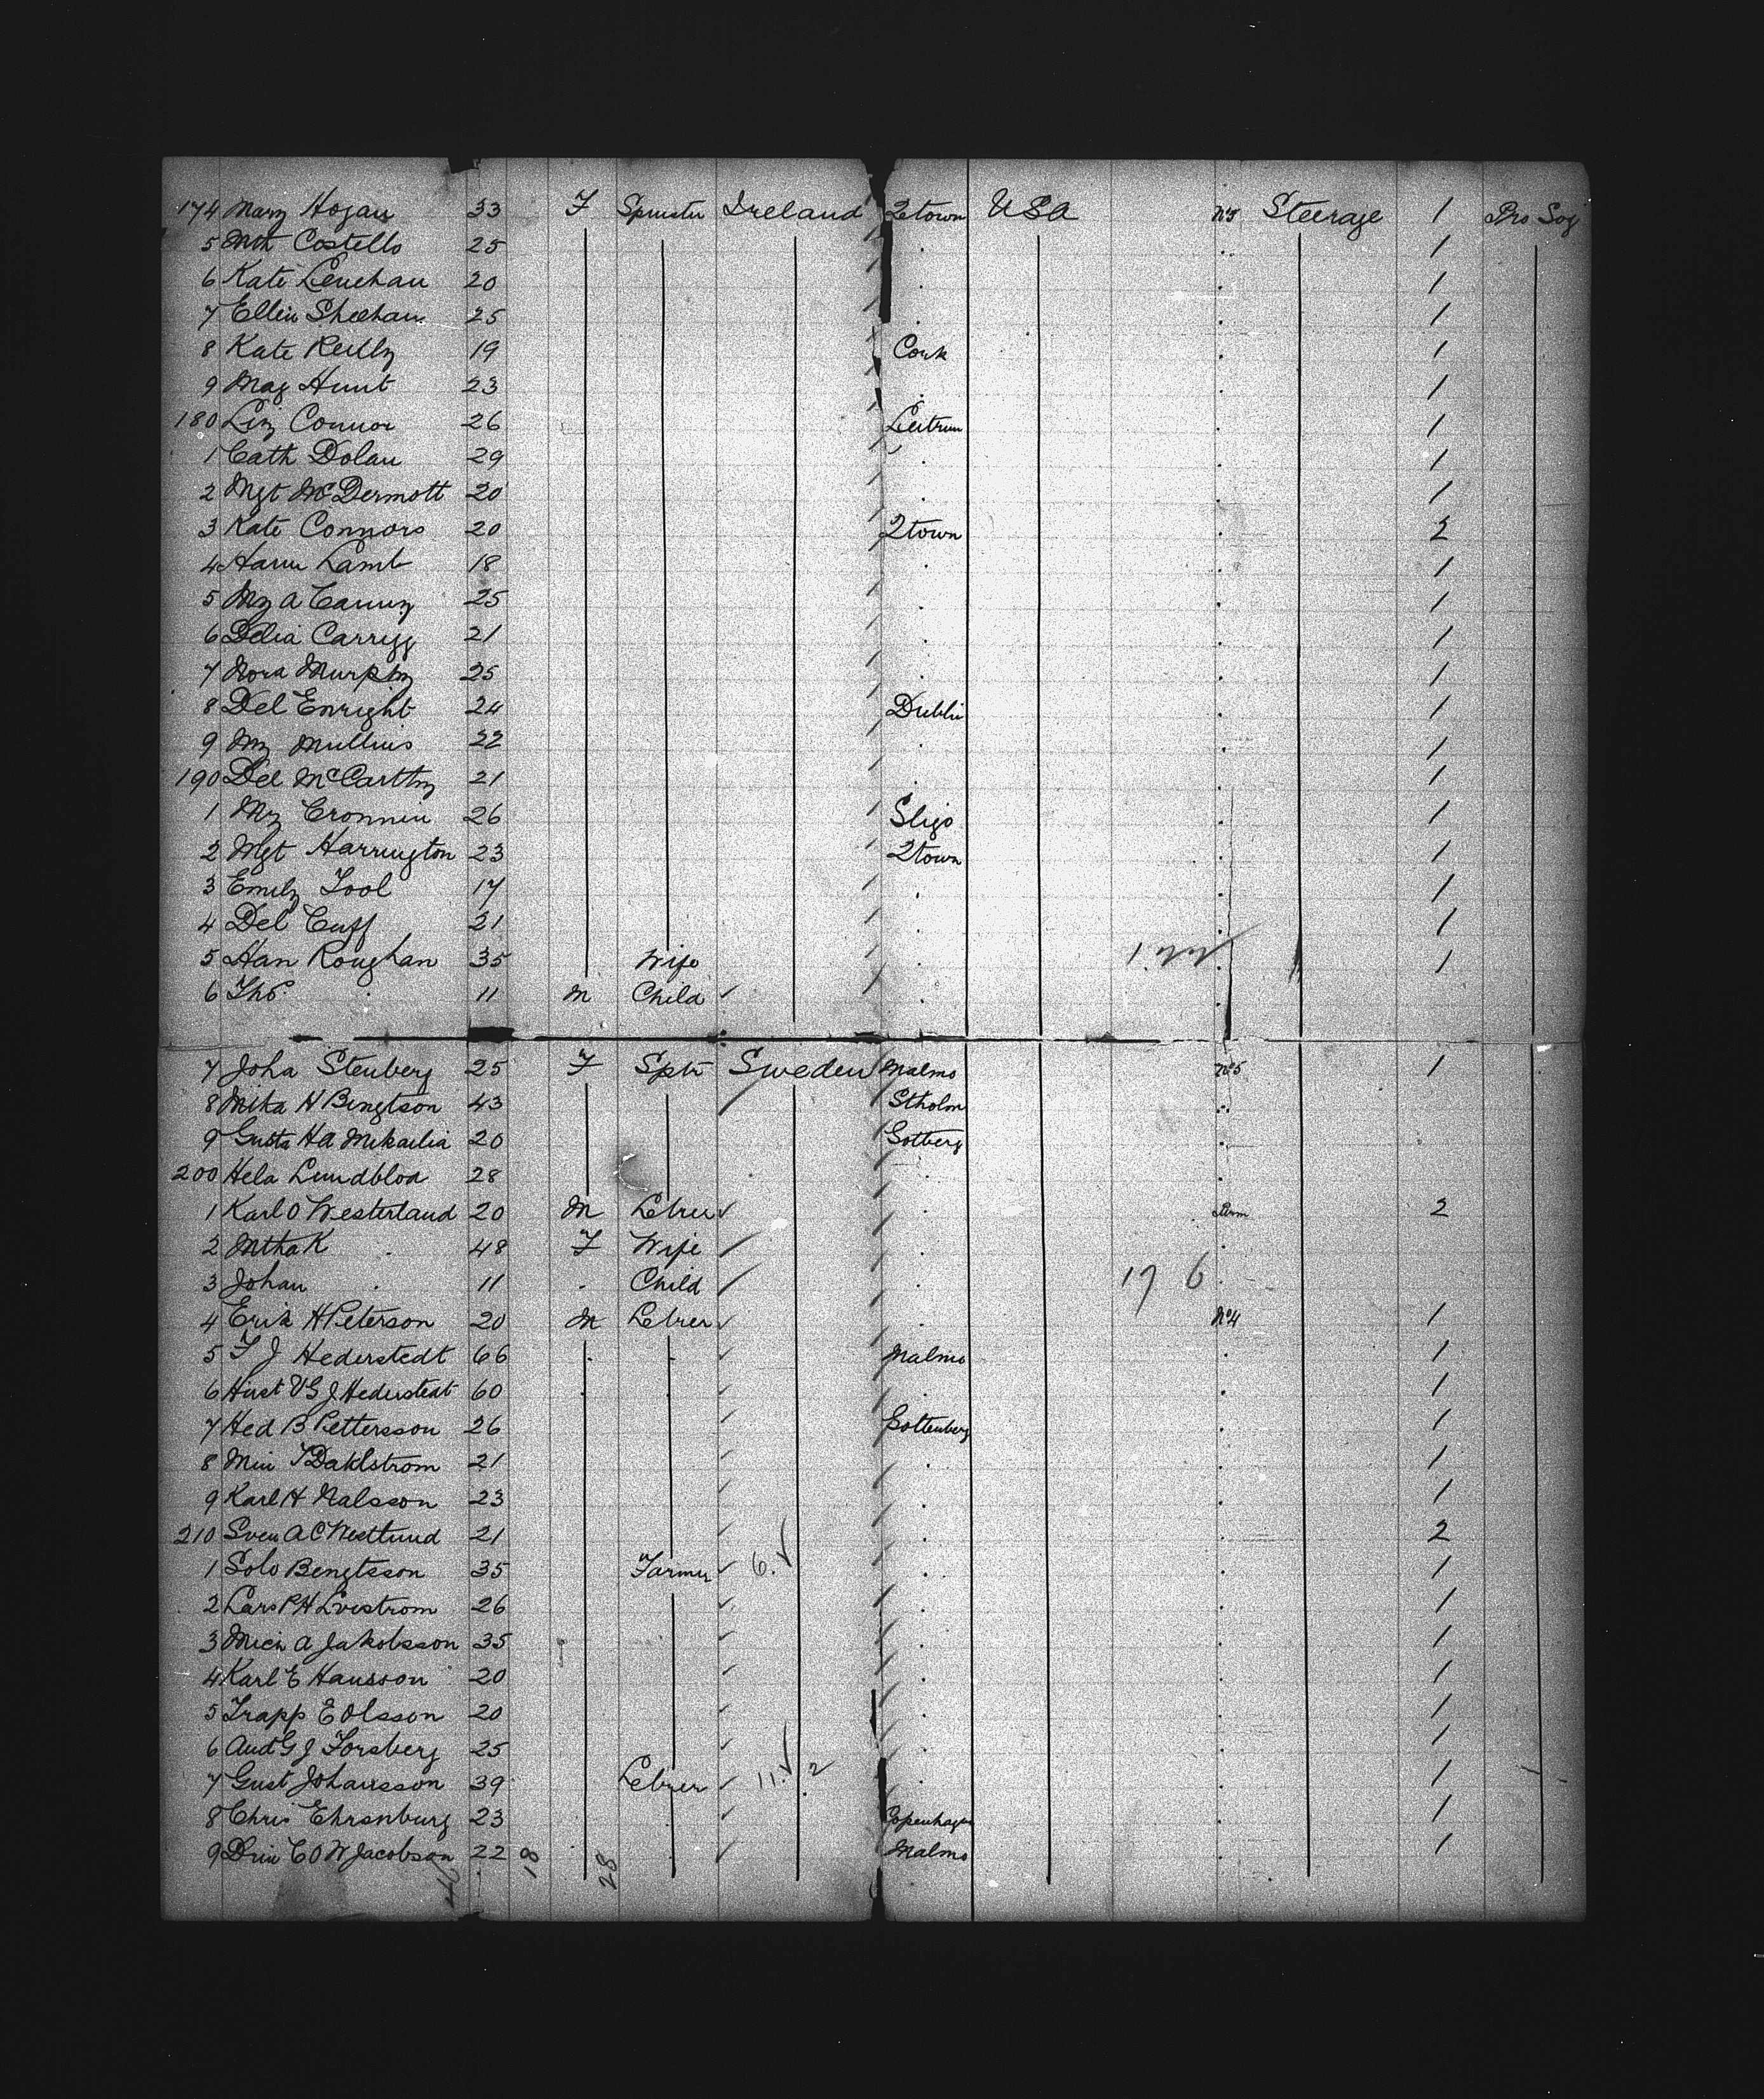 174 Mary Hogan 33 F Spinster Ireland Qtown USA No5 Steerage 1 Pro Soj
5 Mth Costello 25 1
6 Kate Lenehan 20 1
7 Ellen Sheehan 25 1
8 Kate Reilly 19 Cork 1
9 Mag Hunt 23 1
180 Liz Connor 26 Leitrim 1
1 Cath Dolan 29 1
2 Mgt McDermott 20 1
3 Kate Connors 20 Qtown 2
4 Lamb 18 1
5 My A Canny 25 1
6 Delia Carrigg 21 1
7 Nora Murphy 25 1
8 Del Enright 24 Dublin 1
9 My Mullins 22 1
190 Del McCarthy 21 1
1 My Cronnin 26 Sligo 1
2 Mgt Harrington 23 Qtown 1
3 Emily Tool 17 1
4 Del Cuff 21 1
5 Han Roughan 35 Wife 1
6 Tho. . 11 M Child
7 Joha Stenberg 25 F Sptr Sweden Malmo No5 1
8 Mika H Bengtson 43 Stholm
9 Gusta H A Mikaelia 20 Gotberg
200 Hela Lundblod 28
1 Karl O Westerlaud 20 M Lebrer 2
2 Mtha K . 48 F Wife
3 Johan . 11 . Child 17 6
4 Erik H Peterson 20 M Lebrer No4 1
5 F J Hederstedt 66 Malmo 1
6 V G J Hederstedt 60 1
7 Hed B Pettersson 26 Gottenberg 1
8 Min T Dahlstrom 21 1
9 Karl H Nalsson 23 1
210 Sven A C Westlund 21 2
1 Solo Bengtsson 35 Farmer 6. 1
2 Lars P H 26 1
3 A Jakobsson 35 1
4 Karl E Hansson 20 1
5 Trapp E Olsson 20 1
6 Aud G J Forsberg 25 1
7 Gust Johansson 39 Lebrer 11. 2 1
8 Chris Ehrenburg 23 Copenhagen 1
9 C O W Jacobson 22 18 28 Malmo 1